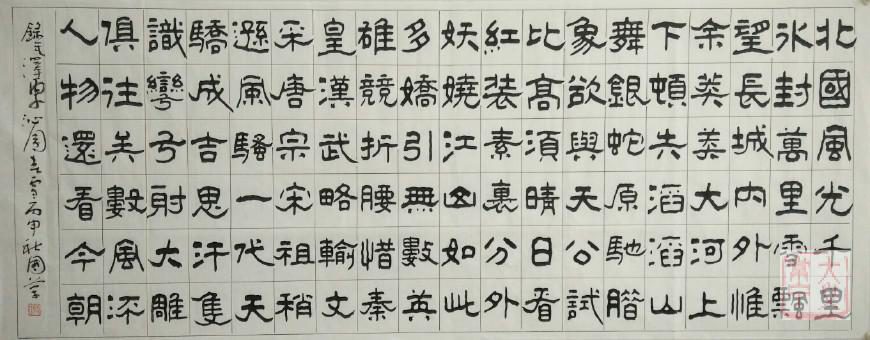 北國風光千里
冰封萬里雪飄
望長城內外惟
余莽莽大河上
下頓失滔滔山
舞銀蛇原馳腊
象欲與天公試
比髙須晴日看
紅装素裹分外
妖嬈江山如此
多嬌引無數英
雄競折腰惜秦
皇漢武略輸文
采唐宗宋祖稍
遜風騷一代天
驕成吉思汗隻
識彎弓射大雕
俱往矣數風流
人物還看今朝
錄毛澤東沁園春雪丙申秋國